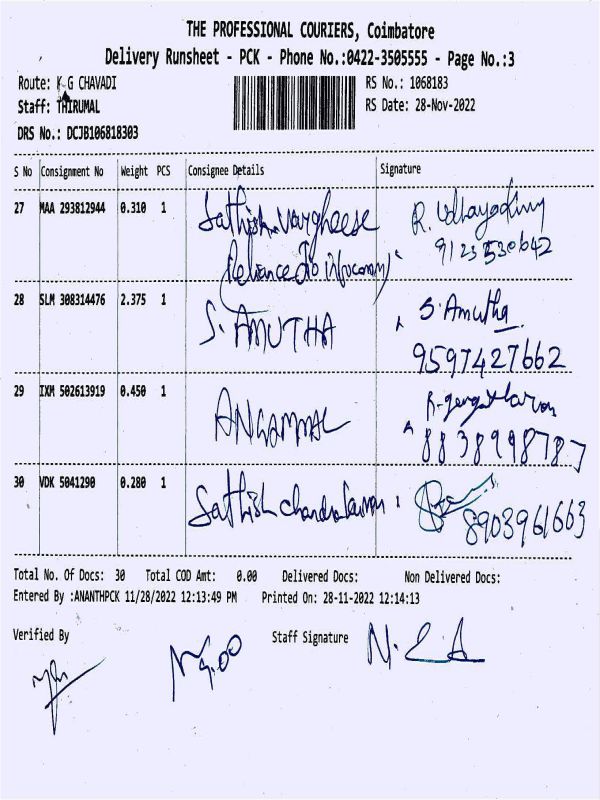 THE PROFESSIONAL COURIERS, Coimbatore
Delivery Runsheet - PCK - Phone No.:0422-3505555 - Page No.:3
Route: K G CHAVADI
RS No.: 1068183
Staff: THIRUMAL
RS Date: 28-Nov-2022
DRS No.: DCJB106818303
S No Consignment No Weight PCS Consignee Details Signature
27 MAA 293812944 0.310 1 Sathish Vargheese R.
Reliance Jio infocomm 9123530642
28 SLM 308314476 2.375 1 S. AMUTHA S. Amutha
9597427662
29 IXM 502613919 0.450 1 ANGAMMAL
8838998787
30 VDK 5041290 0.280 1 Sathish chandra
8903961663
Total No. Of Docs: 30 Total COD Amt: 0.00 Delivered Docs: Non Delivered Docs:
Entered By :ANANTHPCK 11/28/2022 12:13:49 PM Printed On: 28-11-2022 12:14:13
Verified By Staff Signature